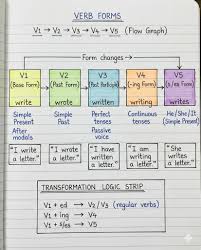 VERB FORMS
V1 → V2 → V3 → V4 → V5 (Flow Graph)
Form changes →
V1 V2 V3 V4 V5
(Base Form) (Past Form) (Past Participle) (-ing Form) (s/es Form)
write wrote written writing writes
Simple Present
After modals
Simple Past
Perfect tenses
Passive voice
Continuous tenses
He/She/It (Simple Present)
"I write a letter."
"I wrote a letter."
"I have written a letter."
"I am writing a letter."
"She writes a letter."
TRANSFORMATION LOGIC STRIP
V1 + ed → V2 / V3 (regular verbs)
V1 + ing → V4
V1 + s/es → V5